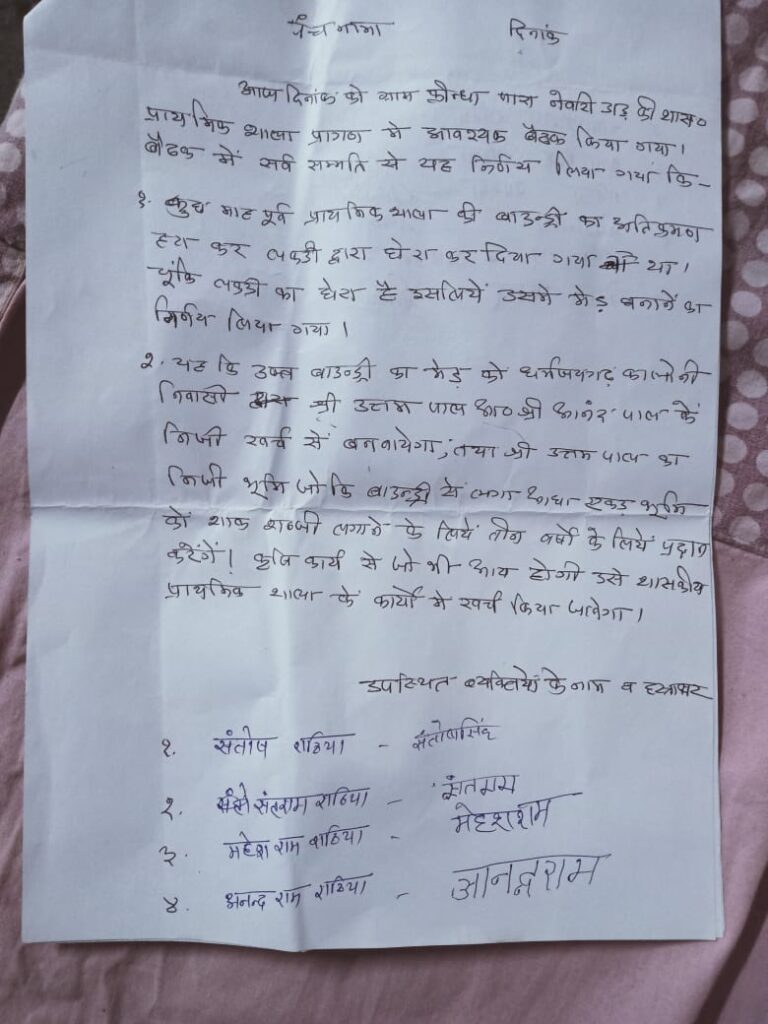 पंचनामा दिनांक
आज दिनांक को ग्राम पारा की शास०
प्राथमिक शाला प्रागण मे आवश्यक बैठक किया गया।
बैठक में सर्व सम्मति से यह निर्णय लिया गया कि-
१. कुछ माह पूर्व प्राथमिक शाला की बाउन्ड्री का अतिक्रमण
हटा कर लकडी द्वारा घेरा कर दिया गया था।
चूंकि लकडी का घेरा है इसलियें उसमे मेड़ बनाने का
निर्णय लिया गया।
२. यह कि उक्त बाउन्ड्री का मेड़ को धर्मजयगढ़ कालोनी
निवासी श्री उत्तम पाल आ० श्री आनंद पाल के
निजी खर्च सें बनवायेगा, तथा श्री उत्तम पाल का
निजी भूमि जो कि बाउन्ड्री से लगा आधा एकड़ भूमि
कों शाक शब्जी लगाने के लियें तीन वर्षो के लियें प्रदान
करेंगें। कृषि कार्य से जो भी आय होगी उसे शासकीय
प्राथमिक शाला के कार्यो मे खर्च किया जावेगा।
उपस्थित व्यक्तियों के नाम व हस्ताक्षर
१. संतोष राठिया - संतोषसिंह
२. संतराम राठिया - संतराम
३. महेश राम राठिया - मेहशराम
४. अनन्द राम राठिया - आनन्दराम